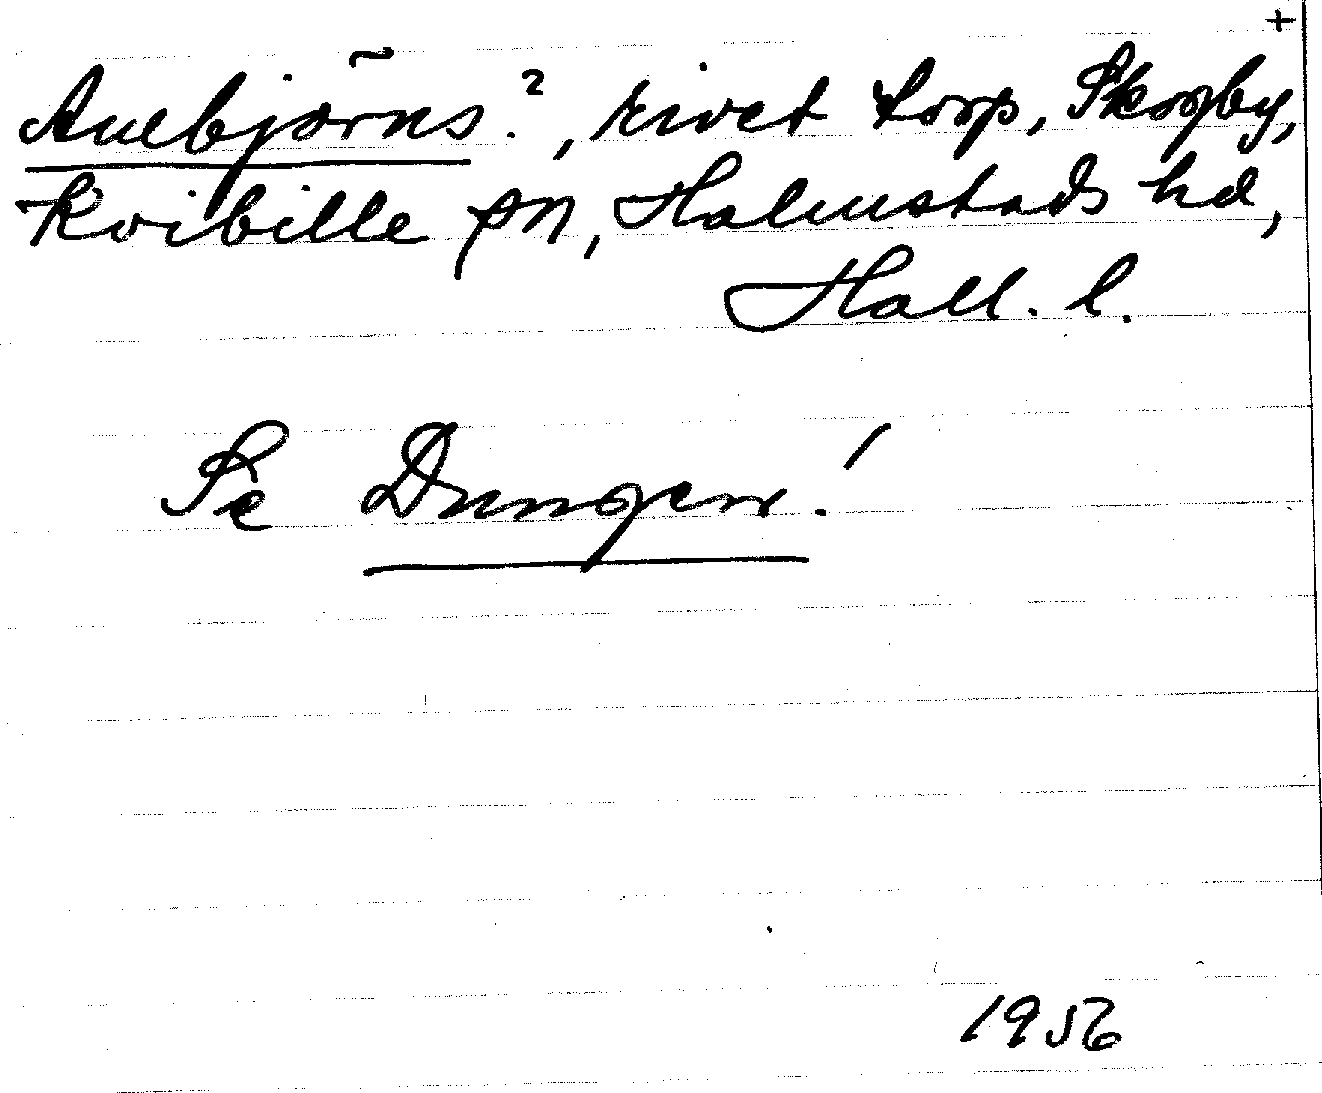 +
Anebjörns?, rivet torp, Skogby,
Kvibille sn, Halmstads hd,
Hall. l.
Se Dungen!
1956